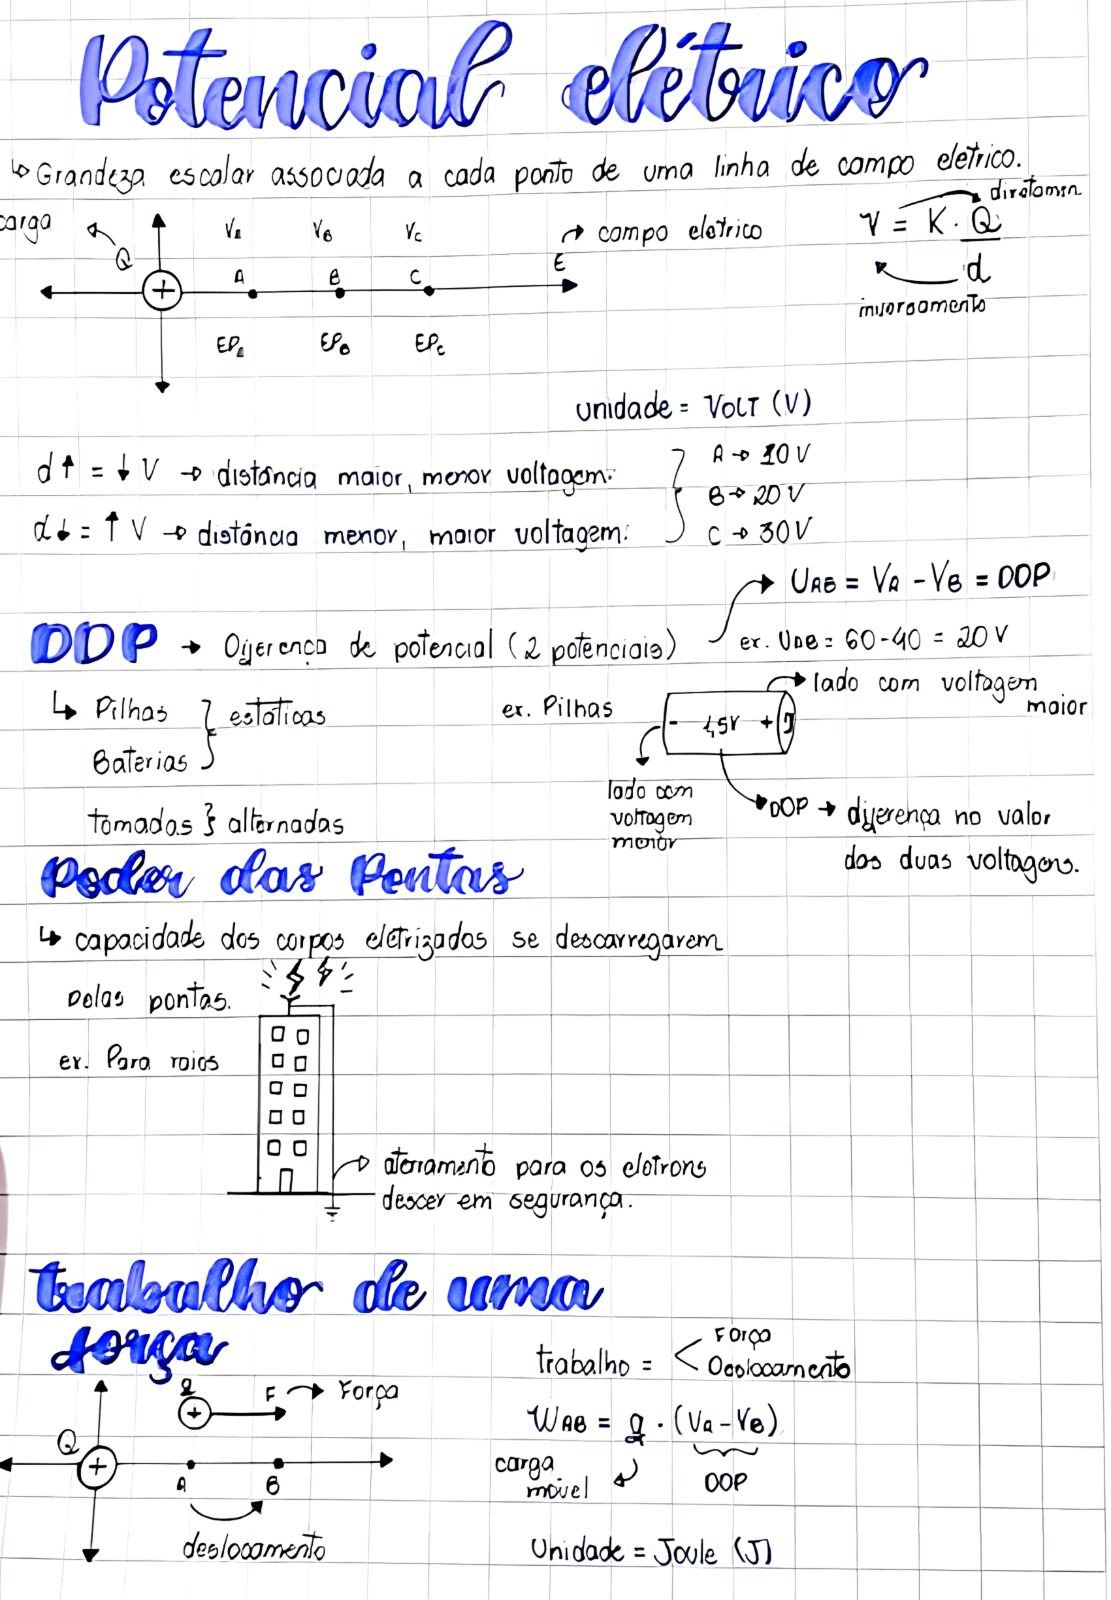 Potencial elétrico
↳ Grandeza escalar associada a cada ponto de uma linha de campo eletrico.
carga
Q
+
VA VB VC
A B C
E
→ campo eletrico
EPA EPB EPC
V = K . Q
d
diretamen
inversamente
unidade = VOLT (V)
d↑ = ↓ V → distância maior, menor voltagem.
d↓ = ↑ V → distância menor, maior voltagem.
A → 10 V
B → 20 V
C → 30 V
→ UAB = VA - VB = DDP
DDP → Diferença de potencial (2 potenciais)
ex. UAB = 60 - 40 = 20 V
↳ Pilhas
Baterias
} estáticas
tomadas } alternadas
ex. Pilhas
- 1,5V +
lado com voltagem
maior
lado com
voltagem
menor
DDP → diferença no valor
das duas voltagens.
Poder das Pontas
↳ capacidade dos corpos eletrizados se descarregarem
pelas pontas.
ex. Para raios
aterramento para os eletrons
descer em segurança.
trabalho de uma
força
q
+
F → Força
Q
+
A B
deslocamento
trabalho = < Força
Deslocamento
WAB = q . (VA - VB)
carga
movel
DDP
Unidade = Joule (J)